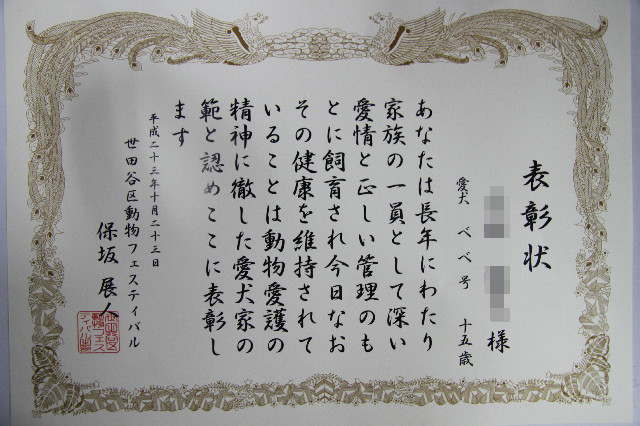 表彰状
様
愛犬 べべ号 十五歳
あなたは長年にわたり
家族の一員として深い
愛情と正しい管理のも
とに飼育され今日なお
その健康を維持されて
いることは動物愛護の
精神に徹した愛犬家の
範と認めここに表彰し
ます
平成二十三年十月二十三日
世田谷区動物フェスティバル
保坂展人